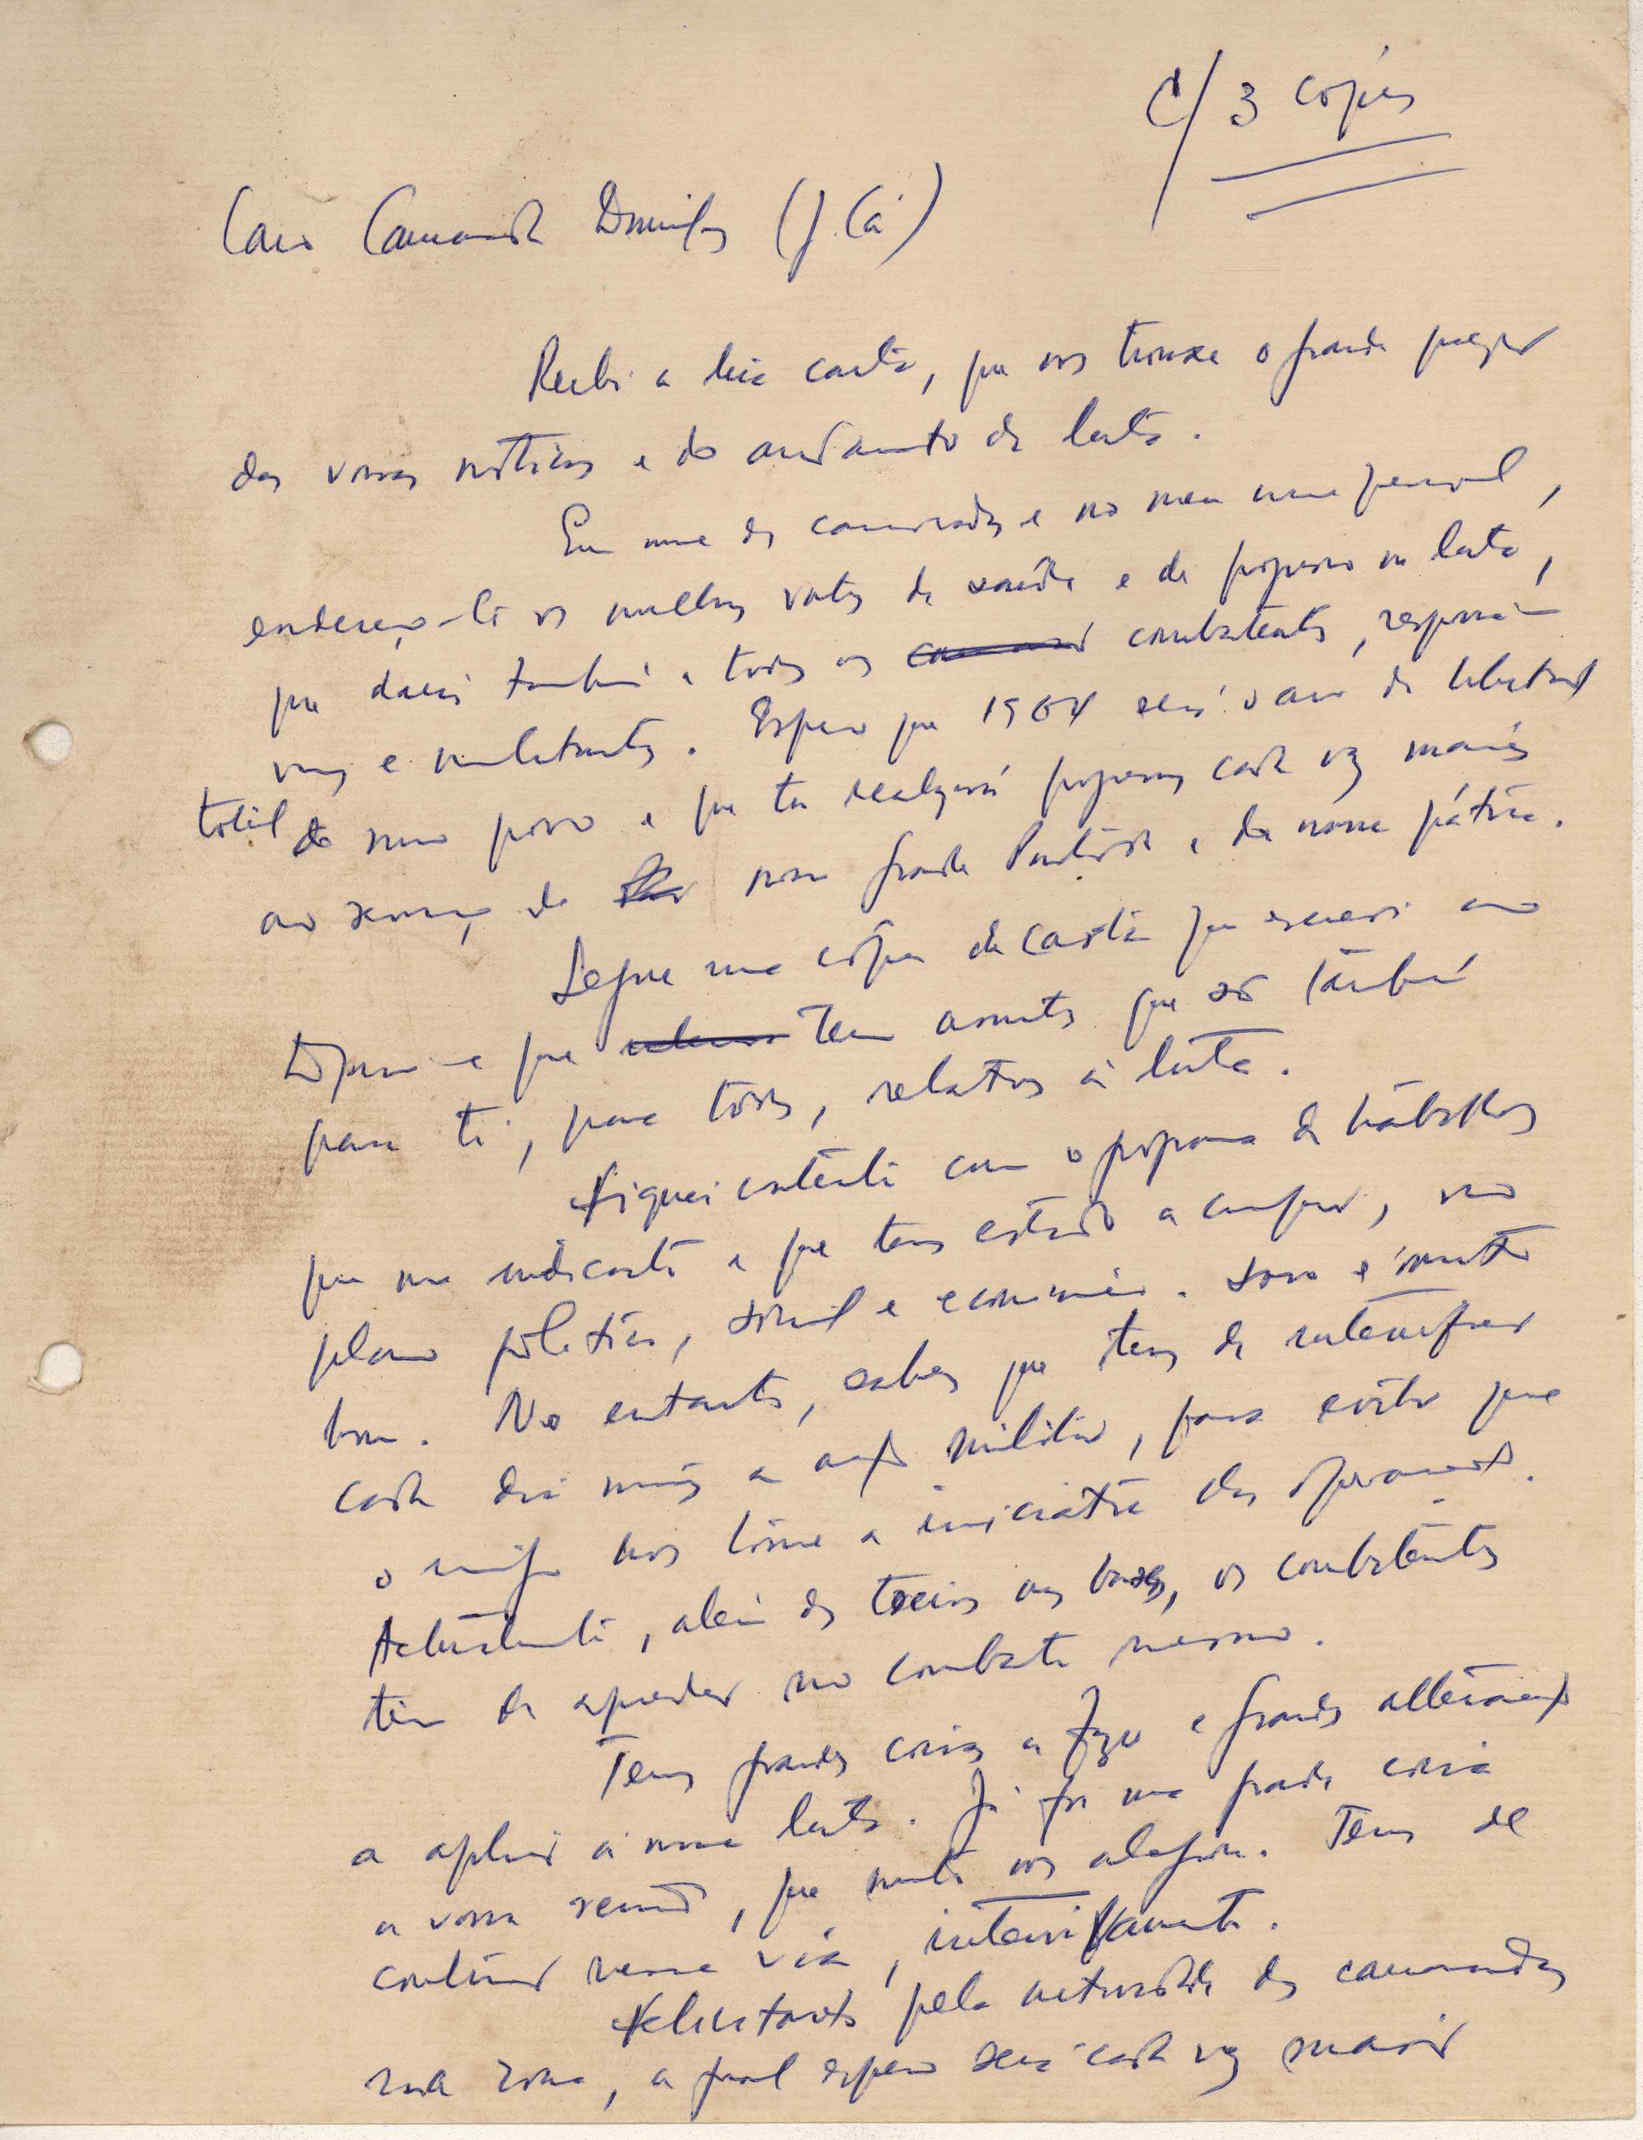 C/ 3 cópias
Caro Camarada Domingos (J. Cá)
Recebi a tua carta, que nos trouxe o grande prazer
das vossas notícias e do andamento da luta.
Em nome dos camaradas e no meu nome pessoal,
endereço-te os melhores votos de saúde e de progresso na luta,
que darás também a todos os combatentes, responsá-
veis e militantes. Espero que 1964 será o ano da libertação
total do nosso povo e que tu realizarás progressos cada vez maiores
ao serviço do nosso grande Partido e da nossa pátria.
Segue uma cópia da carta que escrevi ao
e que tem assuntos que são também
para ti, para todos, relativos à luta.
Fiquei contente com o programa de trabalhos
que me indicaste e que tens estado a cumprir, no
plano político, social e económico. Isso é muito
bom. No entanto, sabes que tens de intensificar
cada dia mais a acção militar, para evitar que
o inimigo nos tome a iniciativa das operações.
Actualmente, além dos treinos nas bases, os combatentes
têm de aprender no combate mesmo.
Temos grandes coisas a fazer e grandes alterações
a aplicar à nossa luta. Já foi uma grande coisa
a vossa reunião, que muito nos alegrou. Tens de
continuar nessa via, intensivamente.
Felicito-vos pela actividade dos camaradas
na zona, a qual espero será cada vez maior